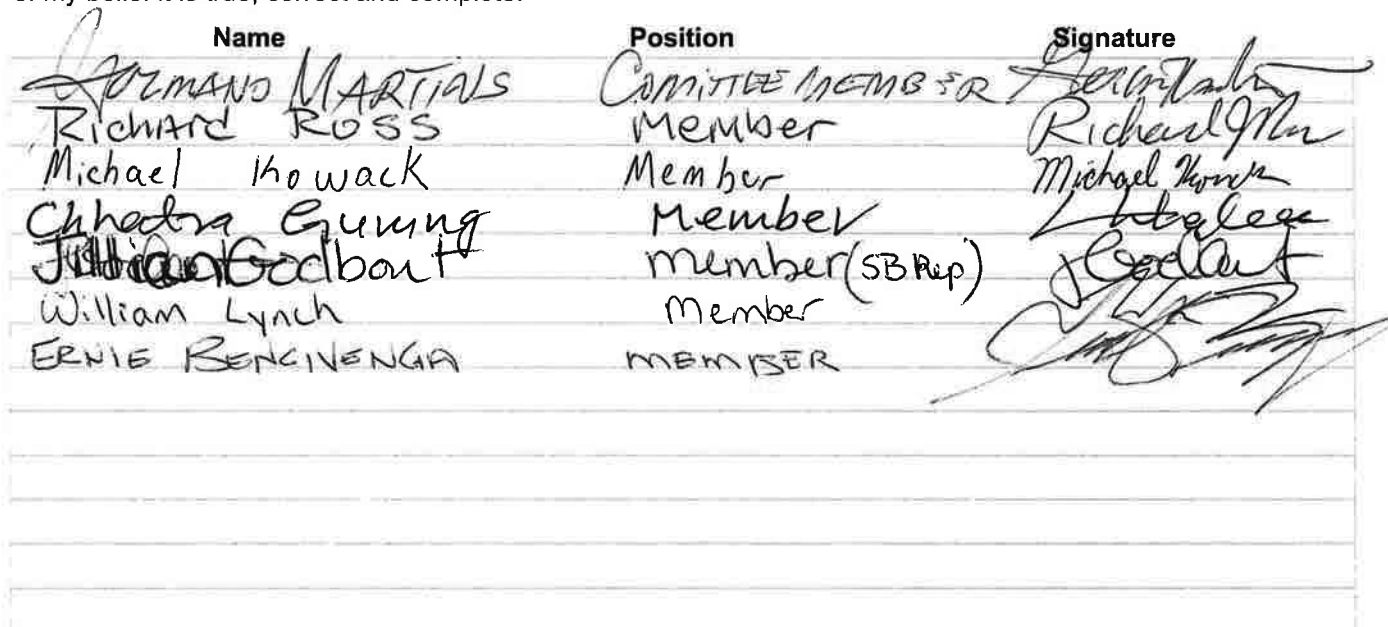 of my belief it is true, correct and complete.
Name Position Signature
MARTINS COMITTEE MEMBER
RichArd Ross Member Richard
Michael Kowack Member Michael
Chhatra Gurung Member
Jillian Godbout member (SB Rep) JGodbout
William Lynch Member
ERNIE BENCIVENGA MEMBER